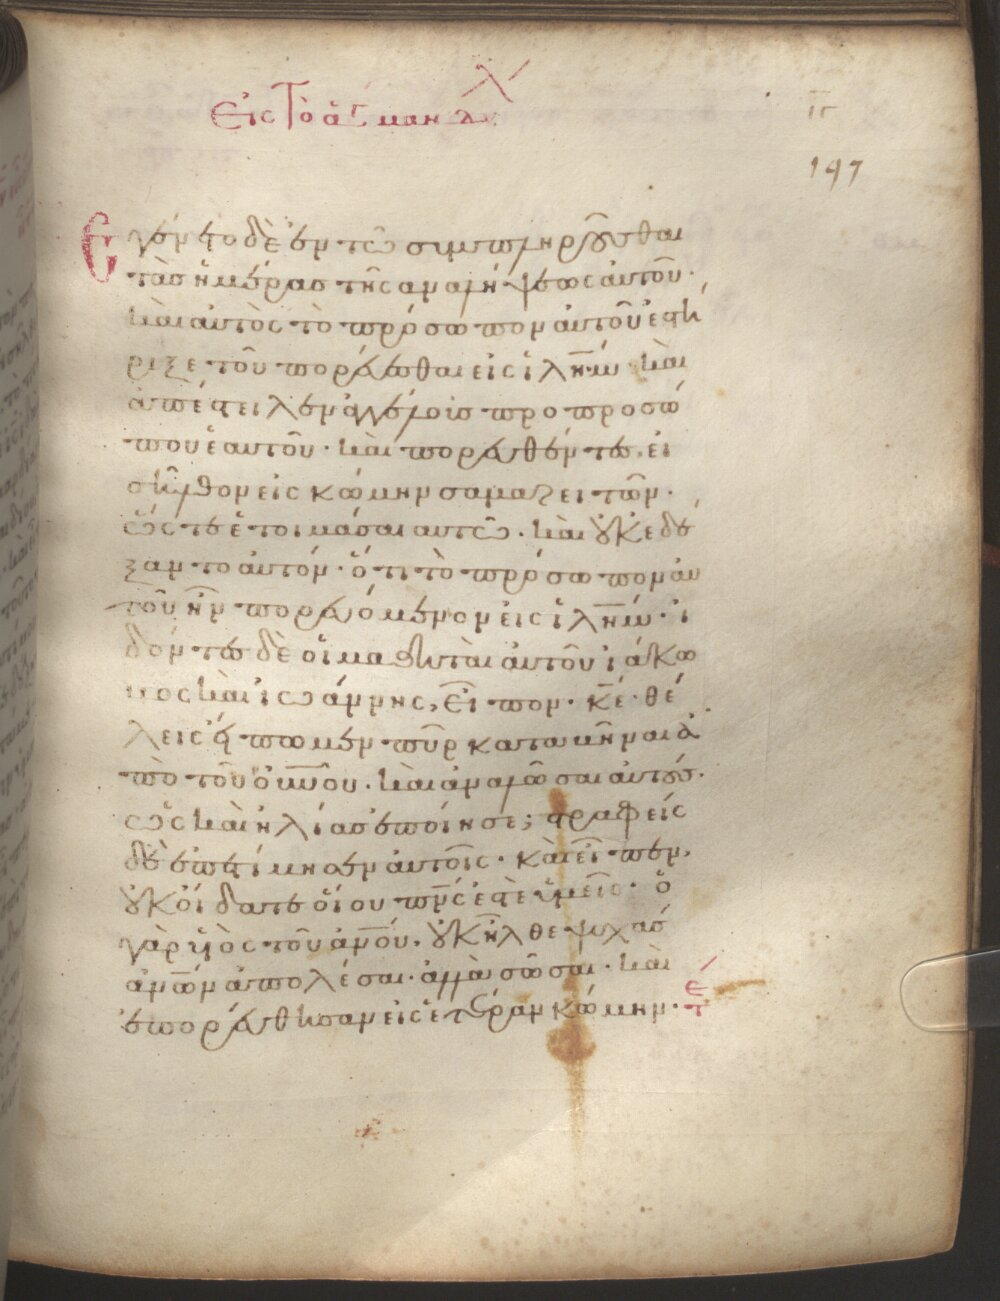 Εἰς τὸ ἅγ μανηλ
ιγ
197
Εγένετο δὲ ἐν τῶ συμπληροῦσθαι
τὰς ἡμέρας τῆς ἀναλήψεως αὐτοῦ·
καὶ αὐτὸς τὸ πρόσωπον αὐτοῦ ἐστή
ριξε τοῦ πορεύεσθαι εἰς ἱλῆμ· καὶ
ἀπέστειλεν ἀγγέλοις προ προσώ
που ἑαυτοῦ· καὶ πορευθέντες, εἰ
σῆλθον εἰς κώμην σαμαρειτῶν·
ὥστε ἑτοιμάσαι αυτῶ· καὶ οὐκ ἐδέ
ξαντο αὐτόν· ὅτι τὸ πρόσωπον αὐ
τοῦ ἦν πορευόμενον εἰς ἱλῆμ· ἰ
δόντες δὲ οἱ μαθηταὶ αὐτοῦ ἰάκω
βος καὶ ἰωάννης, εἶπον· κε· θέ
λεις εἴπωμεν πῦρ καταβῆναι ἀ
πὸ τοῦ οὐνου· καὶ ἀναλῶσαι αὐτούς·
ὡς καὶ ἠλίας ἐποίησε; στραφεὶς
δὲ ἐπετίμησεν αὐτοῖς· καὶ εἶπεν,
οὐκ οἴδατε οἵου πνς ἐστὲ ὑμεῖς· ὁ
γὰρ υἱὸς τοῦ ἀνου, οὐκ ἦλθε ψυχὰς
ἀνων ἀπολέσαι· ἀλλὰ σῶσαι· καὶ
ἐπορεύθησαν εἰς ἑτέραν κώμην· τε